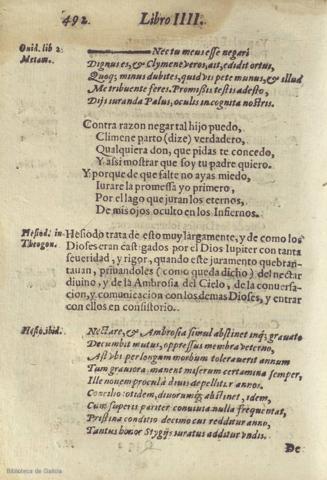 492. Libro IIII.
Ouid. lib 2. Metam.
Nec tu meus esse negari
Dignus es, & Clymene veros, ait, edidit ortus,
Quoq; minus dubites, quid vis pete munus, & illud
Me tribuente feres. Promissis testis adesto,
Dijs iuranda Palus, oculis incognita nostris.
Contra razon negar tal hijo puedo,
Climene parto (dize) verdadero,
Qualquiera don, que pidas te concedo,
Y assi mostrar que soy tu padre quiero.
Y porque de que falte no ayas miedo,
Iurare la promessa yo primero,
Por el lago que juran los eternos,
De mis ojos oculto en los Infiernos.
Hesiod. in Theogon.
Hesiodo trata de esto muy largamente, y de como los
Dioses eran castigados por el Dios Iupiter con tanta
seueridad, y rigor, quando este juramento quebran-
tauan, priuandoles (como queda dicho) del nectar
diuino, y de la Ambrosia del Cielo, de la conuersa-
cion, y comunicacion con los demas Dioses, y entrar
con ellos en consistorio.
Hesio. ibid.
Nectare, & Ambrosia simul abstinet inq; grauato
Decumbit mutus, oppressus membra veterno,
Ast vbi per longum morbum tolerauerit annum
Tum grauiora manent miserum certamina semper,
Ille nouem procul à diuis depellitur annos.
Concilio totidem, diuorumq; abstinet, idem,
Cum superis pariter conuiuia nulla frequentat,
Pristina conditio decimo cui redditur anno,
Tantus honor Stygijs iuratus additur vndis.
De
Biblioteca de Galicia